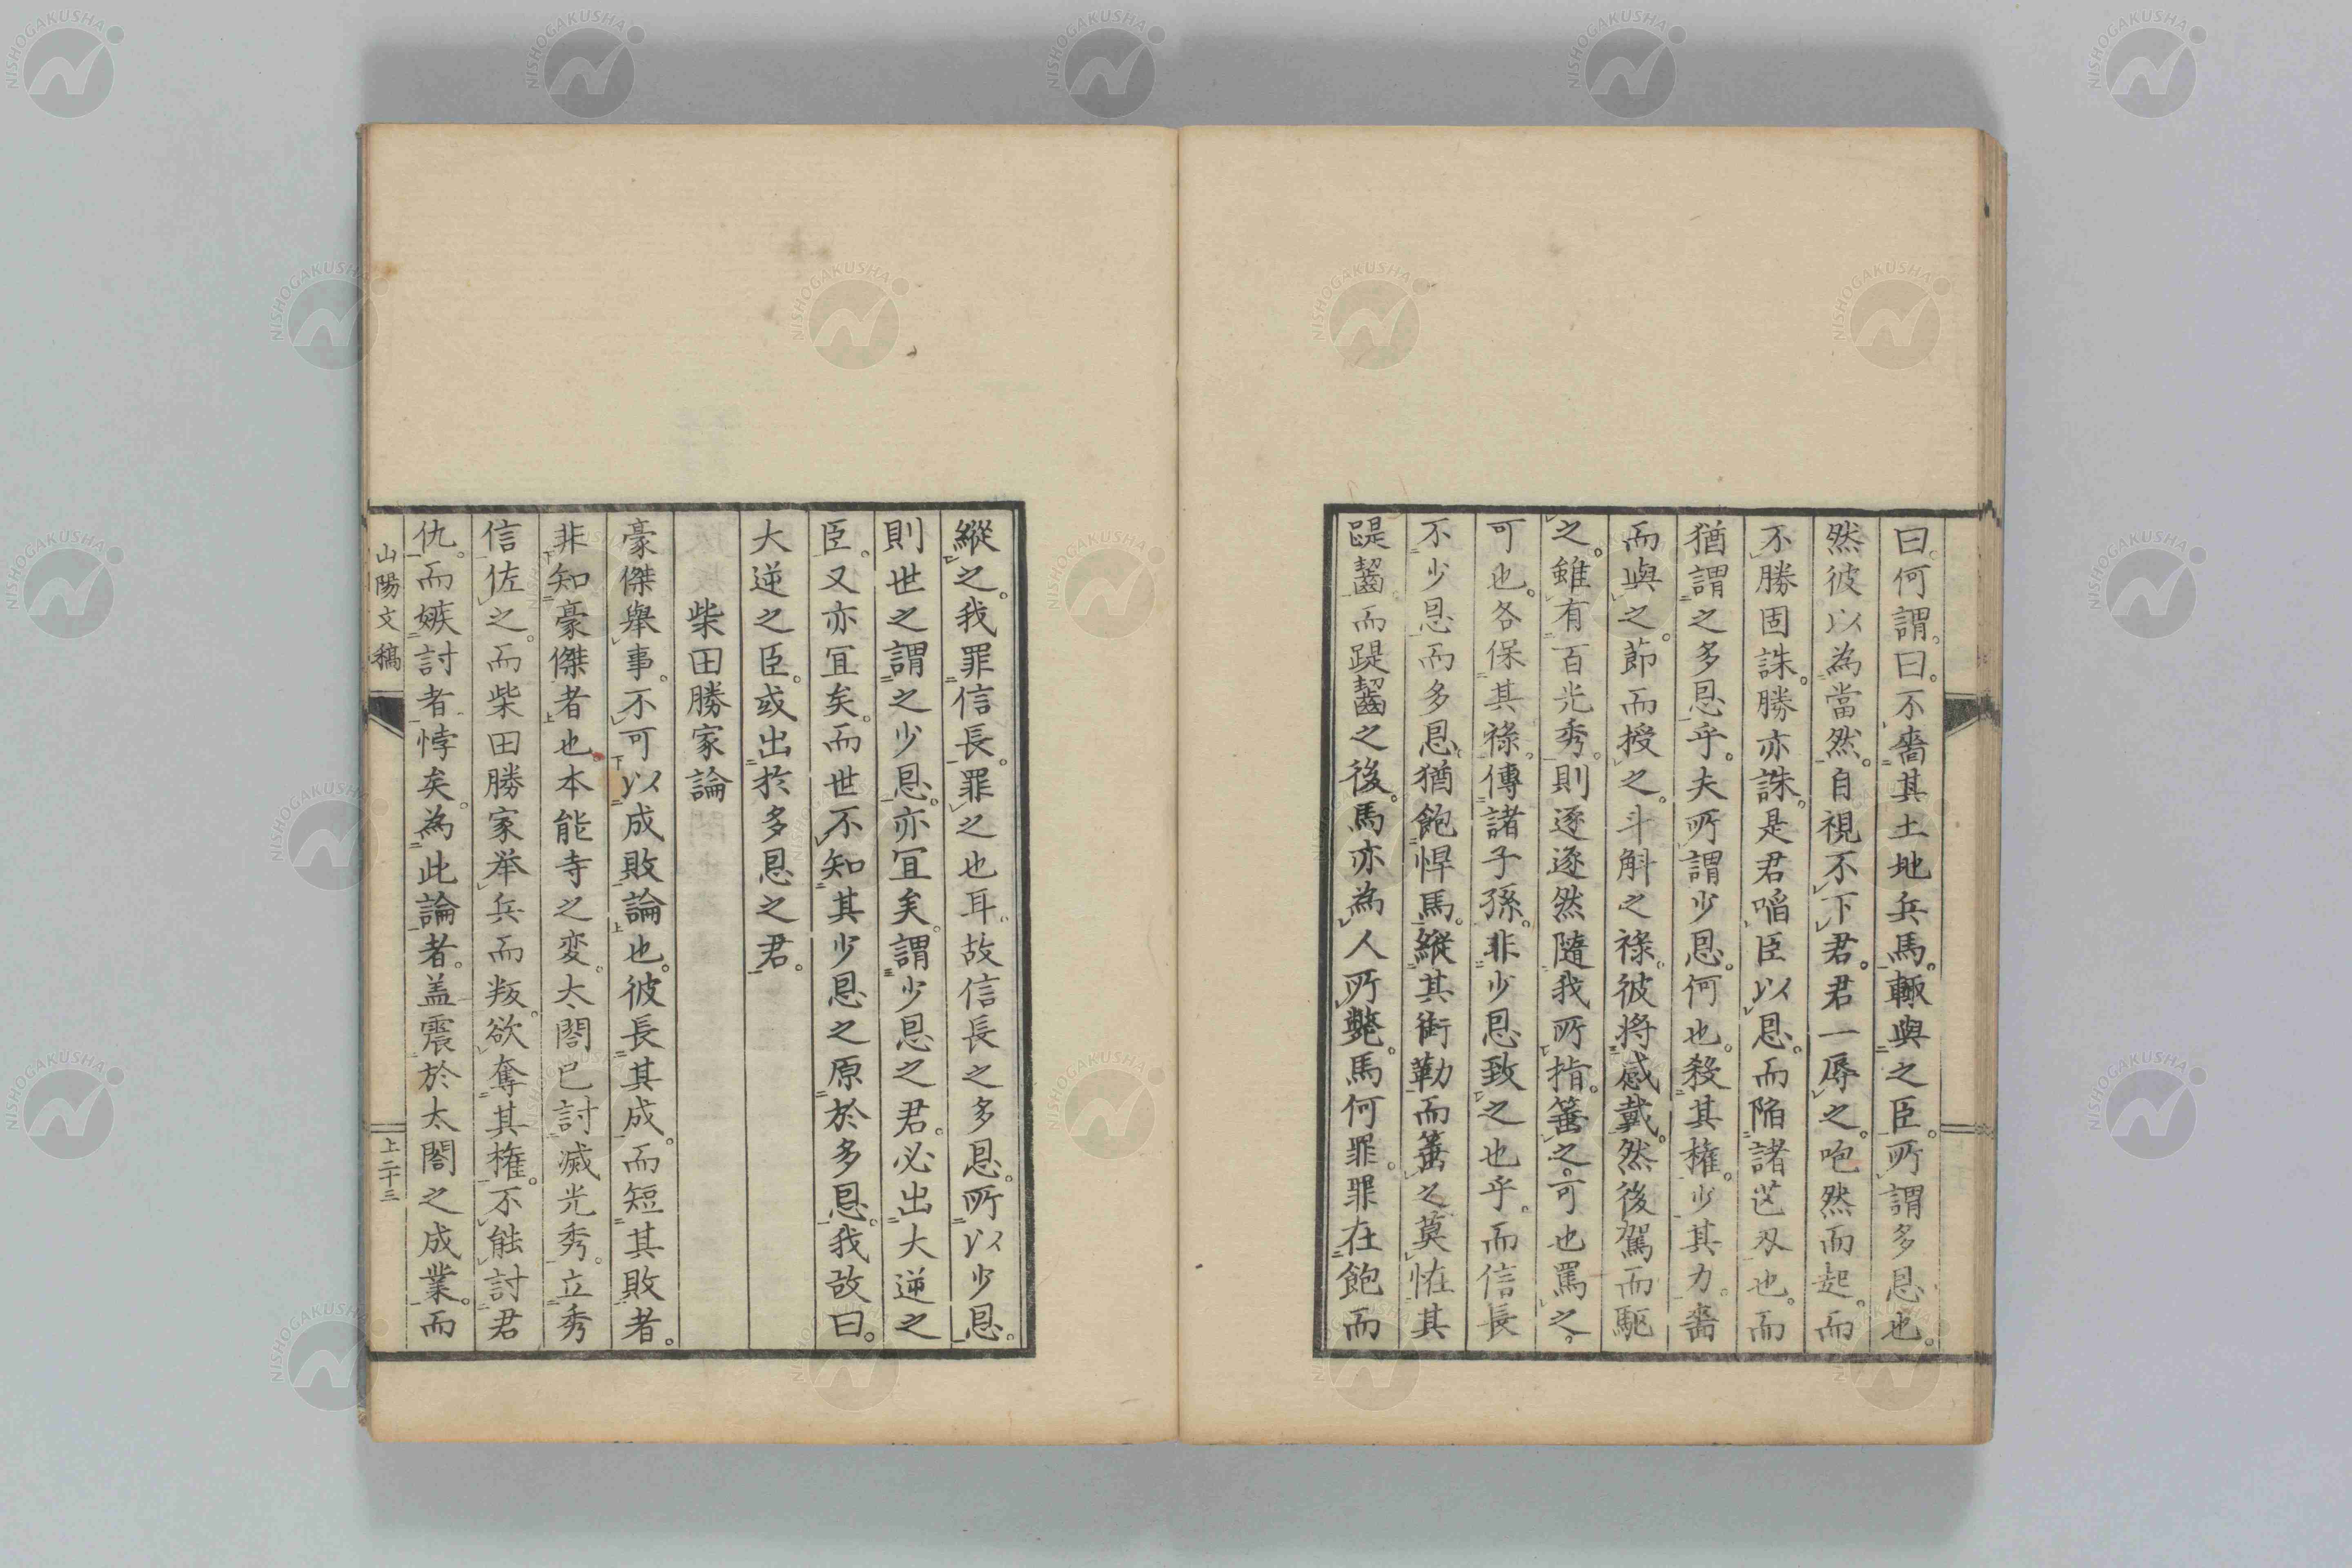 曰。何謂。曰。不嗇其土地兵馬。輙與之臣。所謂多恩也。
然彼以為當然。自視不下君。君一辱之。咆然而起。而
不勝固誅。勝亦誅。是君啗臣以恩。而陥諸芒刄也。而
猶謂之多恩乎。夫所謂少恩。何也。殺其権。少其力。嗇
而與之。莭而授之。斗斛之禄。彼将感戴。然後駕而駆
之。雖有百光秀。則逐逐然隨我所指。箠之。可也罵之。
可也。各保其禄。傳諸子孫。非少恩致之也乎。而信長
不少恩而多恩。猶飽悍馬。縦其銜勒而箠之莫恠其
踶齧而踶齧之後。馬亦為人所斃。馬何罪。罪在飽而
縱之。我罪信長。罪之也耳。故信長之多恩。所以少恩。
則世之謂之少恩。亦冝矣。謂少恩之君。必出大逆之
臣。又亦冝矣。而世不知其少恩之原於多恩。我故曰。
大逆之臣。或出於多恩之君。
柴田勝家論
豪傑舉事。不可以成敗論也。彼長其成。而短其敗者。
非知豪傑者也。本能寺之変。太閤已討滅光秀。立秀
信佐之。而柴田勝家举兵而叛。欲奪其権。不能討君
仇。而嫉討者。悖矣。為此論者。盖震於太閤之成業。而
山陽文稿
上二十三
NISHOGAKUSHA